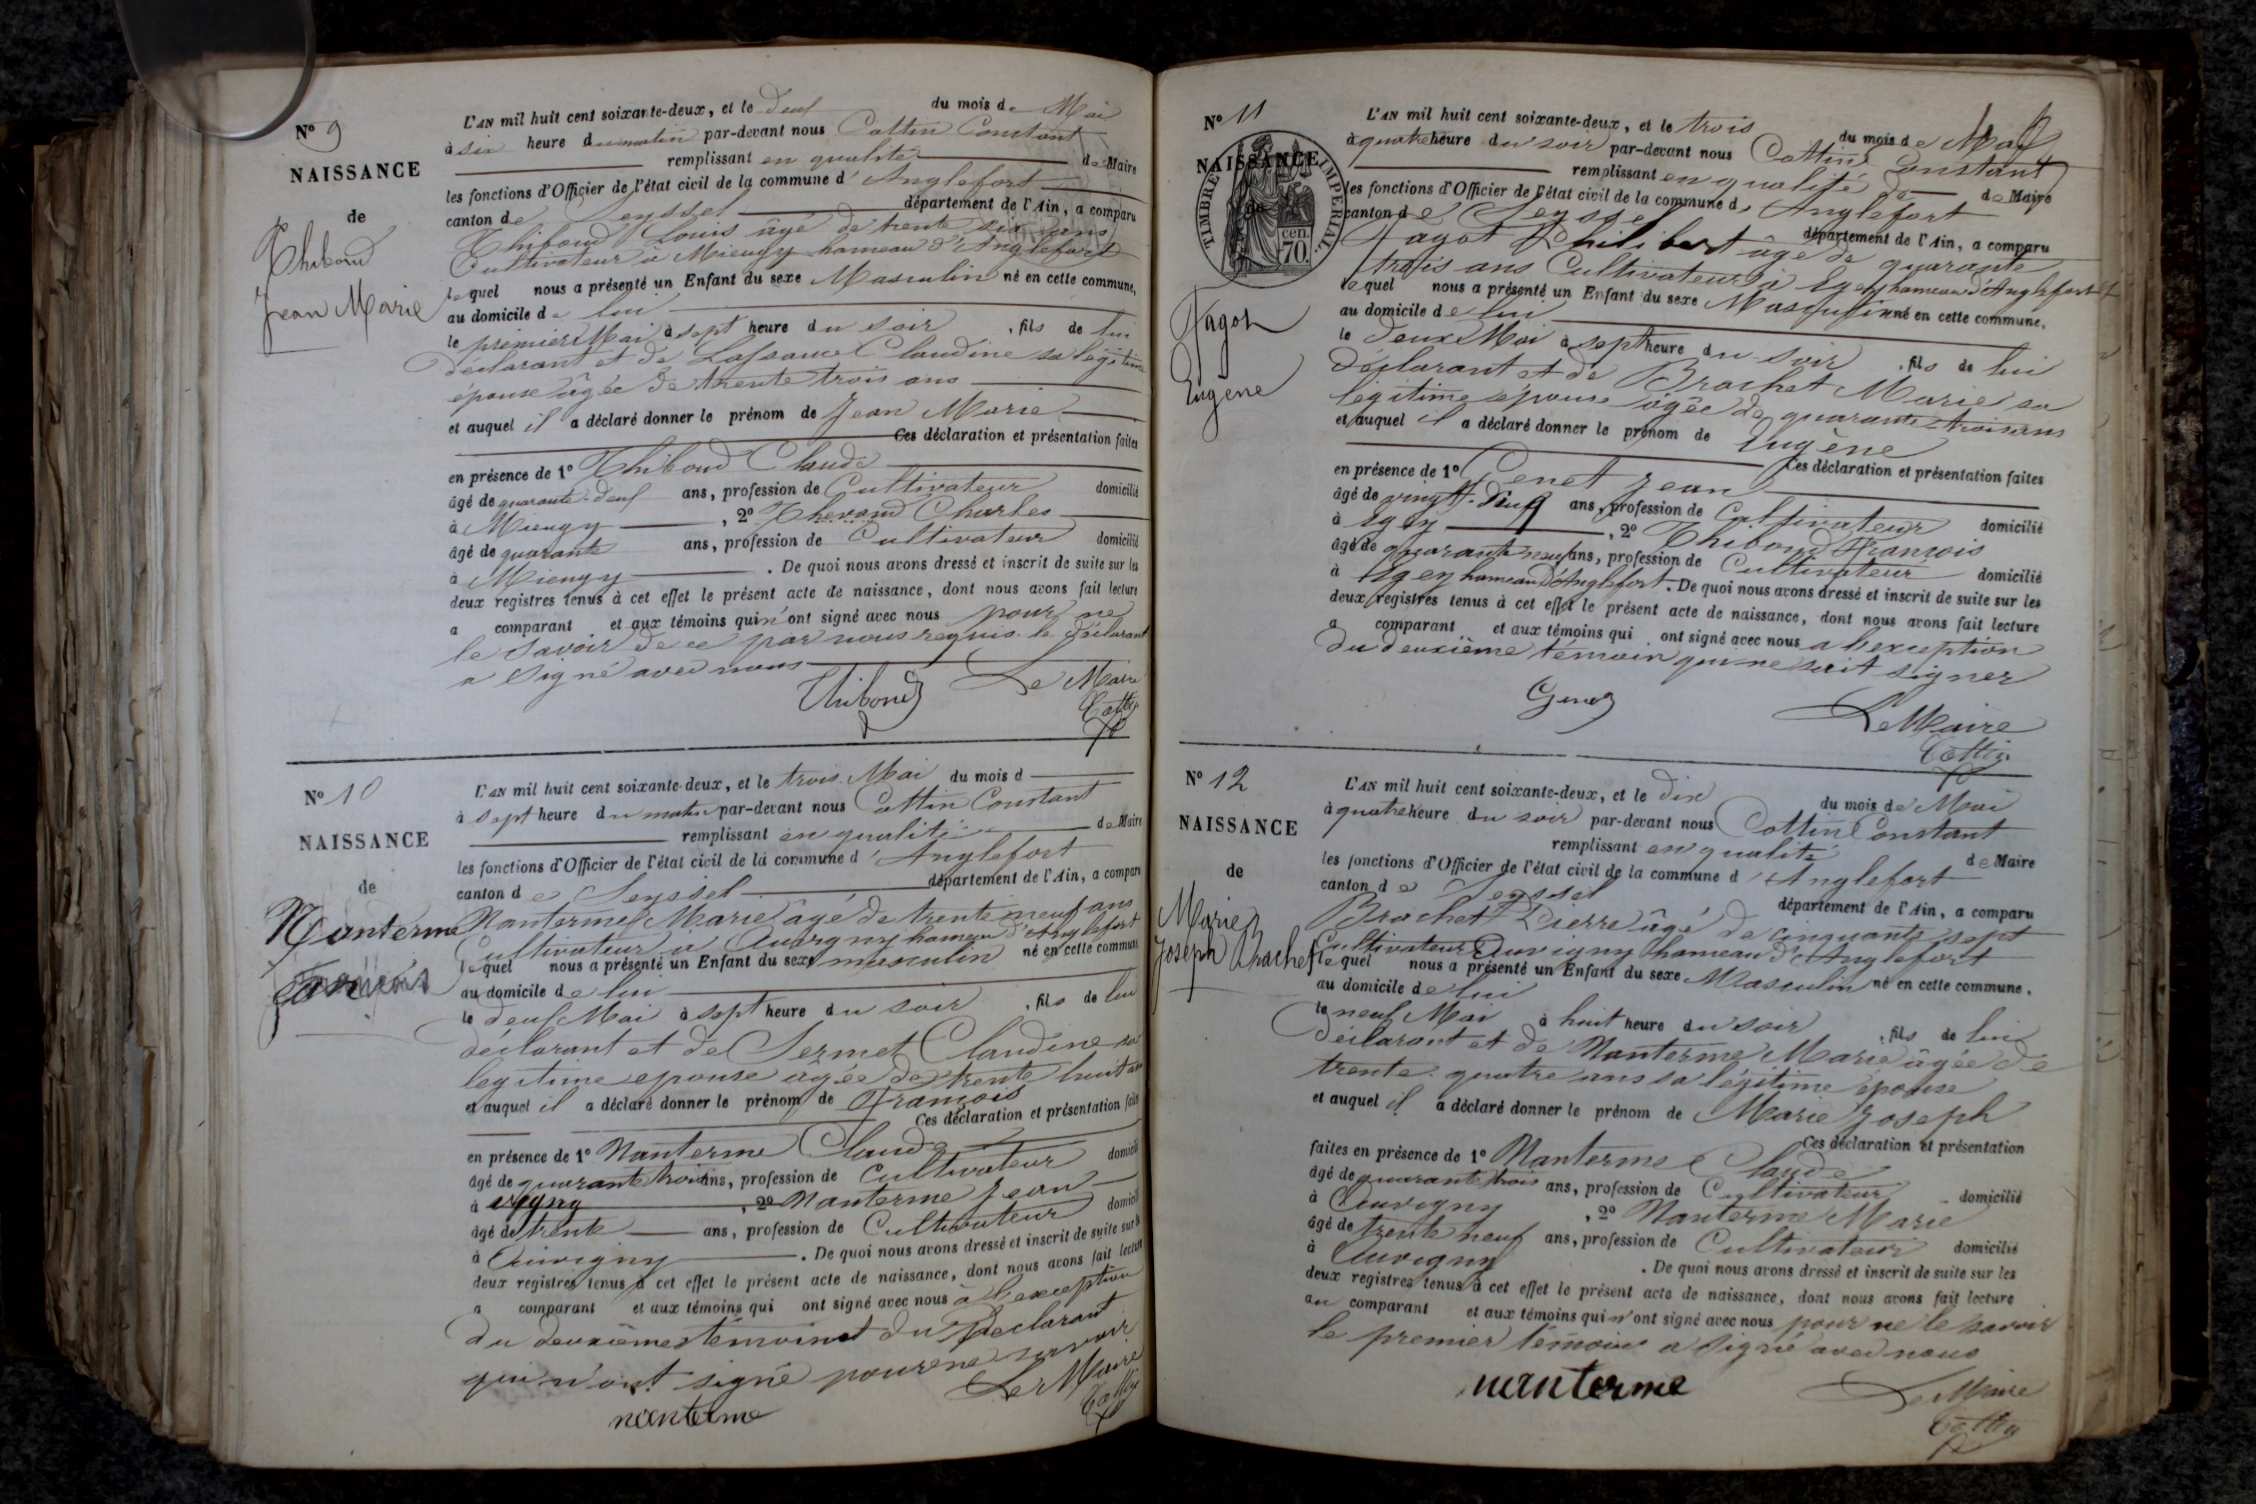 N° 9
NAISSANCE
de
Thiboud
Jean Marie
L'AN mil huit cent soixante-deux, et le deux du mois de Mai
à six heure du matin par-devant nous Cottin Constant
remplissant en qualité de Maire
les fonctions d'Officier de l'état civil de la commune d'Anglefort
canton de Seyssel département de l'Ain, a comparu
Thiboud Louis âgé de trente six ans
Cultivateur à Mieugy hameau d'Anglefort
lequel nous a présenté un Enfant du sexe Masculin né en cette commune,
au domicile de lui
le premier Mai à sept heure du soir, fils de lui
déclarant et de Claudine sa légitime
épouse âgée de trente trois ans
et auquel il a déclaré donner le prénom de Jean Marie
Ces déclaration et présentation faites
en présence de 1° Thiboud Claude
âgé de quarante-deux ans, profession de Cultivateur domicilié
à Mieugy, 2° Charles
âgé de quarante ans, profession de Cultivateur domicilié
à Mieugy. De quoi nous avons dressé et inscrit de suite sur les
deux registres tenus à cet effet le présent acte de naissance, dont nous avons fait lecture
a comparant et aux témoins qui n'ont signé avec nous pour ne
le savoir de ce par nous requis le déclarant
a signé avec nous
Thiboud Le Maire
Cottin
N° 10
NAISSANCE
de
Nanterme
François
L'AN mil huit cent soixante-deux, et le trois Mai du mois d
à sept heure du matin par-devant nous Cottin Constant
remplissant en qualité de Maire
les fonctions d'Officier de l'état civil de la commune d'Anglefort
canton de Seyssel département de l'Ain, a comparu
Nanterme Marie âgé de trente neuf ans
Cultivateur à Auvigny hameau d'Anglefort
lequel nous a présenté un Enfant du sexe masculin né en cette commune
au domicile de lui
le deux Mai à sept heure du soir, fils de lui
déclarant et de Sermet Claudine sa
légitime épouse âgée de trente huit ans
et auquel il a déclaré donner le prénom de François
Ces déclaration et présentation faites
en présence de 1° Nanterme Claude
âgé de quarante trois ans, profession de Cultivateur domicilié
à, 2° Nanterme Jean
âgé de trente ans, profession de Cultivateur domicilié
à Auvigny. De quoi nous avons dressé et inscrit de suite sur les
deux registres tenus à cet effet le présent acte de naissance, dont nous avons fait lecture
a comparant et aux témoins qui ont signé avec nous à l'exception
du deuxième témoin et du Déclarant
qui n'ont signé pour ne savoir
Le Maire
Cottin
nanterme
N° 11
NAISSANCE
TIMBRE IMPERIAL
70 cen.
Fagot
Eugène
L'AN mil huit cent soixante-deux, et le trois du mois de Mai
à quatre heure du soir par-devant nous Cottin Constant
remplissant en qualité de Maire
les fonctions d'Officier de l'état civil de la commune d'Anglefort
canton de Seyssel département de l'Ain, a comparu
Fagot Philibert âgé de quarante
trois ans Cultivateur à hameau d'Anglefort
lequel nous a présenté un Enfant du sexe Masculin né en cette commune,
au domicile de lui
le deux Mai à sept heure du soir, fils de lui
déclarant et de Brachet Marie sa
légitime épouse âgée de quarante trois ans
et auquel il a déclaré donner le prénom de Eugène
Ces déclaration et présentation faites
en présence de 1° Genet Jean
âgé de vingt-neuf ans, profession de Cultivateur domicilié
à, 2° Thiboud François
âgé de quarante neuf ans, profession de Cultivateur domicilié
à hameau d'Anglefort. De quoi nous avons dressé et inscrit de suite sur les
deux registres tenus à cet effet le présent acte de naissance, dont nous avons fait lecture
a comparant et aux témoins qui ont signé avec nous a l'exception
du deuxième témoin qui ne sait signer
Genet
Le Maire
Cottin
N° 12
NAISSANCE
de
Marie
Joseph Brachet
L'AN mil huit cent soixante-deux, et le dix du mois de Mai
à quatre heure du soir par-devant nous Cottin Constant
remplissant en qualité de Maire
les fonctions d'Officier de l'état civil de la commune d'Anglefort
canton de Seyssel département de l'Ain, a comparu
Brachet Pierre âgé de cinquante sept
Cultivateur Auvigny hameau d'Anglefort
lequel nous a présenté un Enfant du sexe Masculin né en cette commune.
au domicile de lui
le neuf Mai à huit heure du soir, fils de lui
déclarant et de Nanterme Marie âgée de
trente quatre ans sa légitime épouse
et auquel il a déclaré donner le prénom de Marie Joseph
Ces déclaration et présentation
faites en présence de 1° Nanterme Claude
âgé de quarante trois ans, profession de Cultivateur domicilié
à Auvigny, 2° Nanterme Marie
âgé de trente neuf ans, profession de Cultivateur domicilié
à Auvigny. De quoi nous avons dressé et inscrit de suite sur les
deux registres tenus à cet effet le présent acte de naissance, dont nous avons fait lecture
au comparant et aux témoins qui n'ont signé avec nous pour ne le savoir
le premier témoin a signé avec nous
nanterme
Le Maire
Cottin